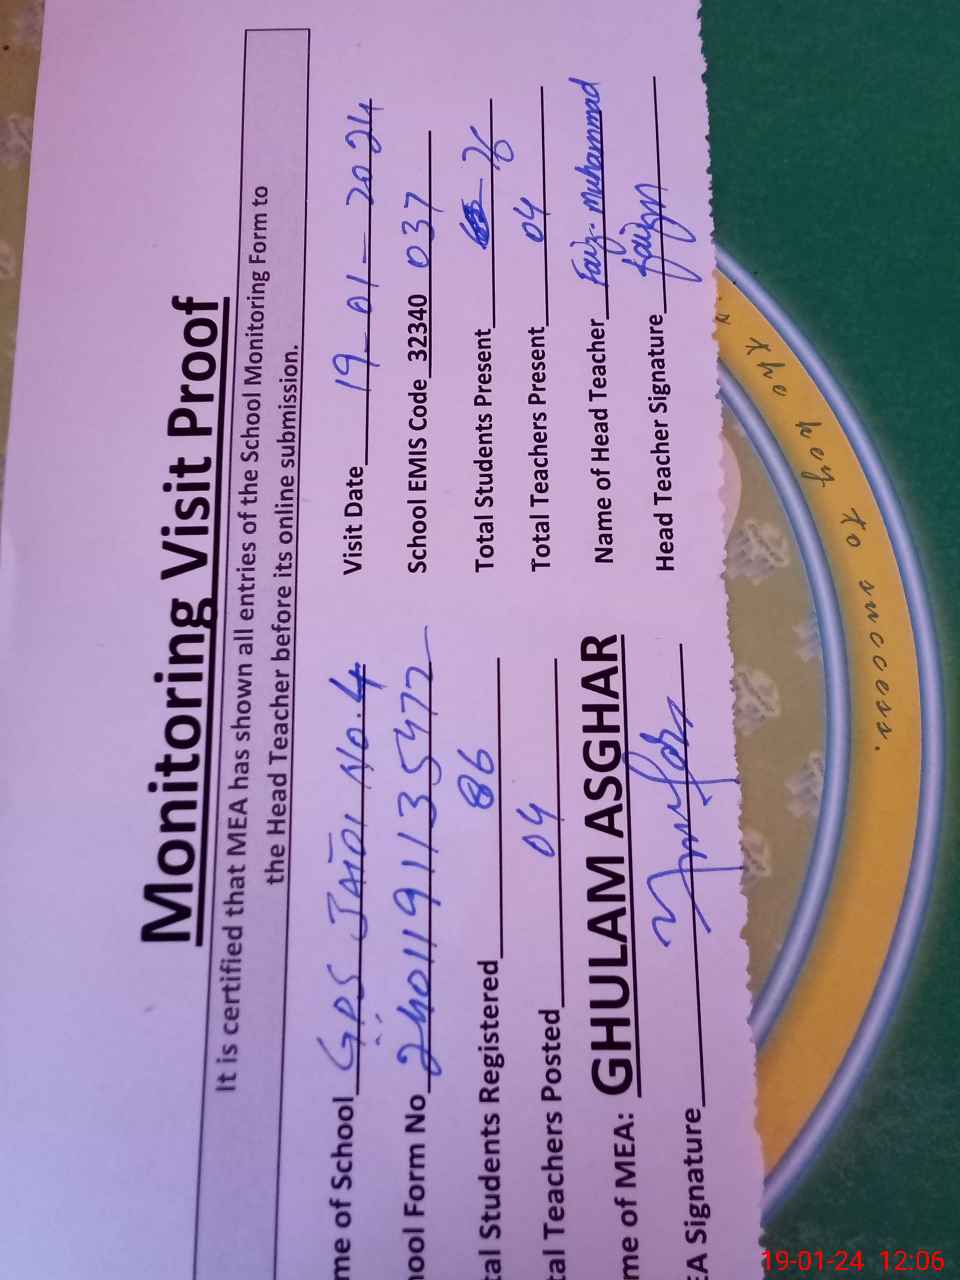 Monitoring Visit Proof
It is certified that MEA has shown all entries of the School Monitoring Form to
the Head Teacher before its online submission.
me of School GPS JATOI NO.4 Visit Date 19-01-2024
hool Form No 2401191135472 School EMIS Code 32340 037
tal Students Registered 86 Total Students Present 76
tal Teachers Posted 04 Total Teachers Present 04
me of MEA: GHULAM ASGHAR Name of Head Teacher Faiz. Muhammad
EA Signature Head Teacher Signature
the key to success.
19-01-24 12:06